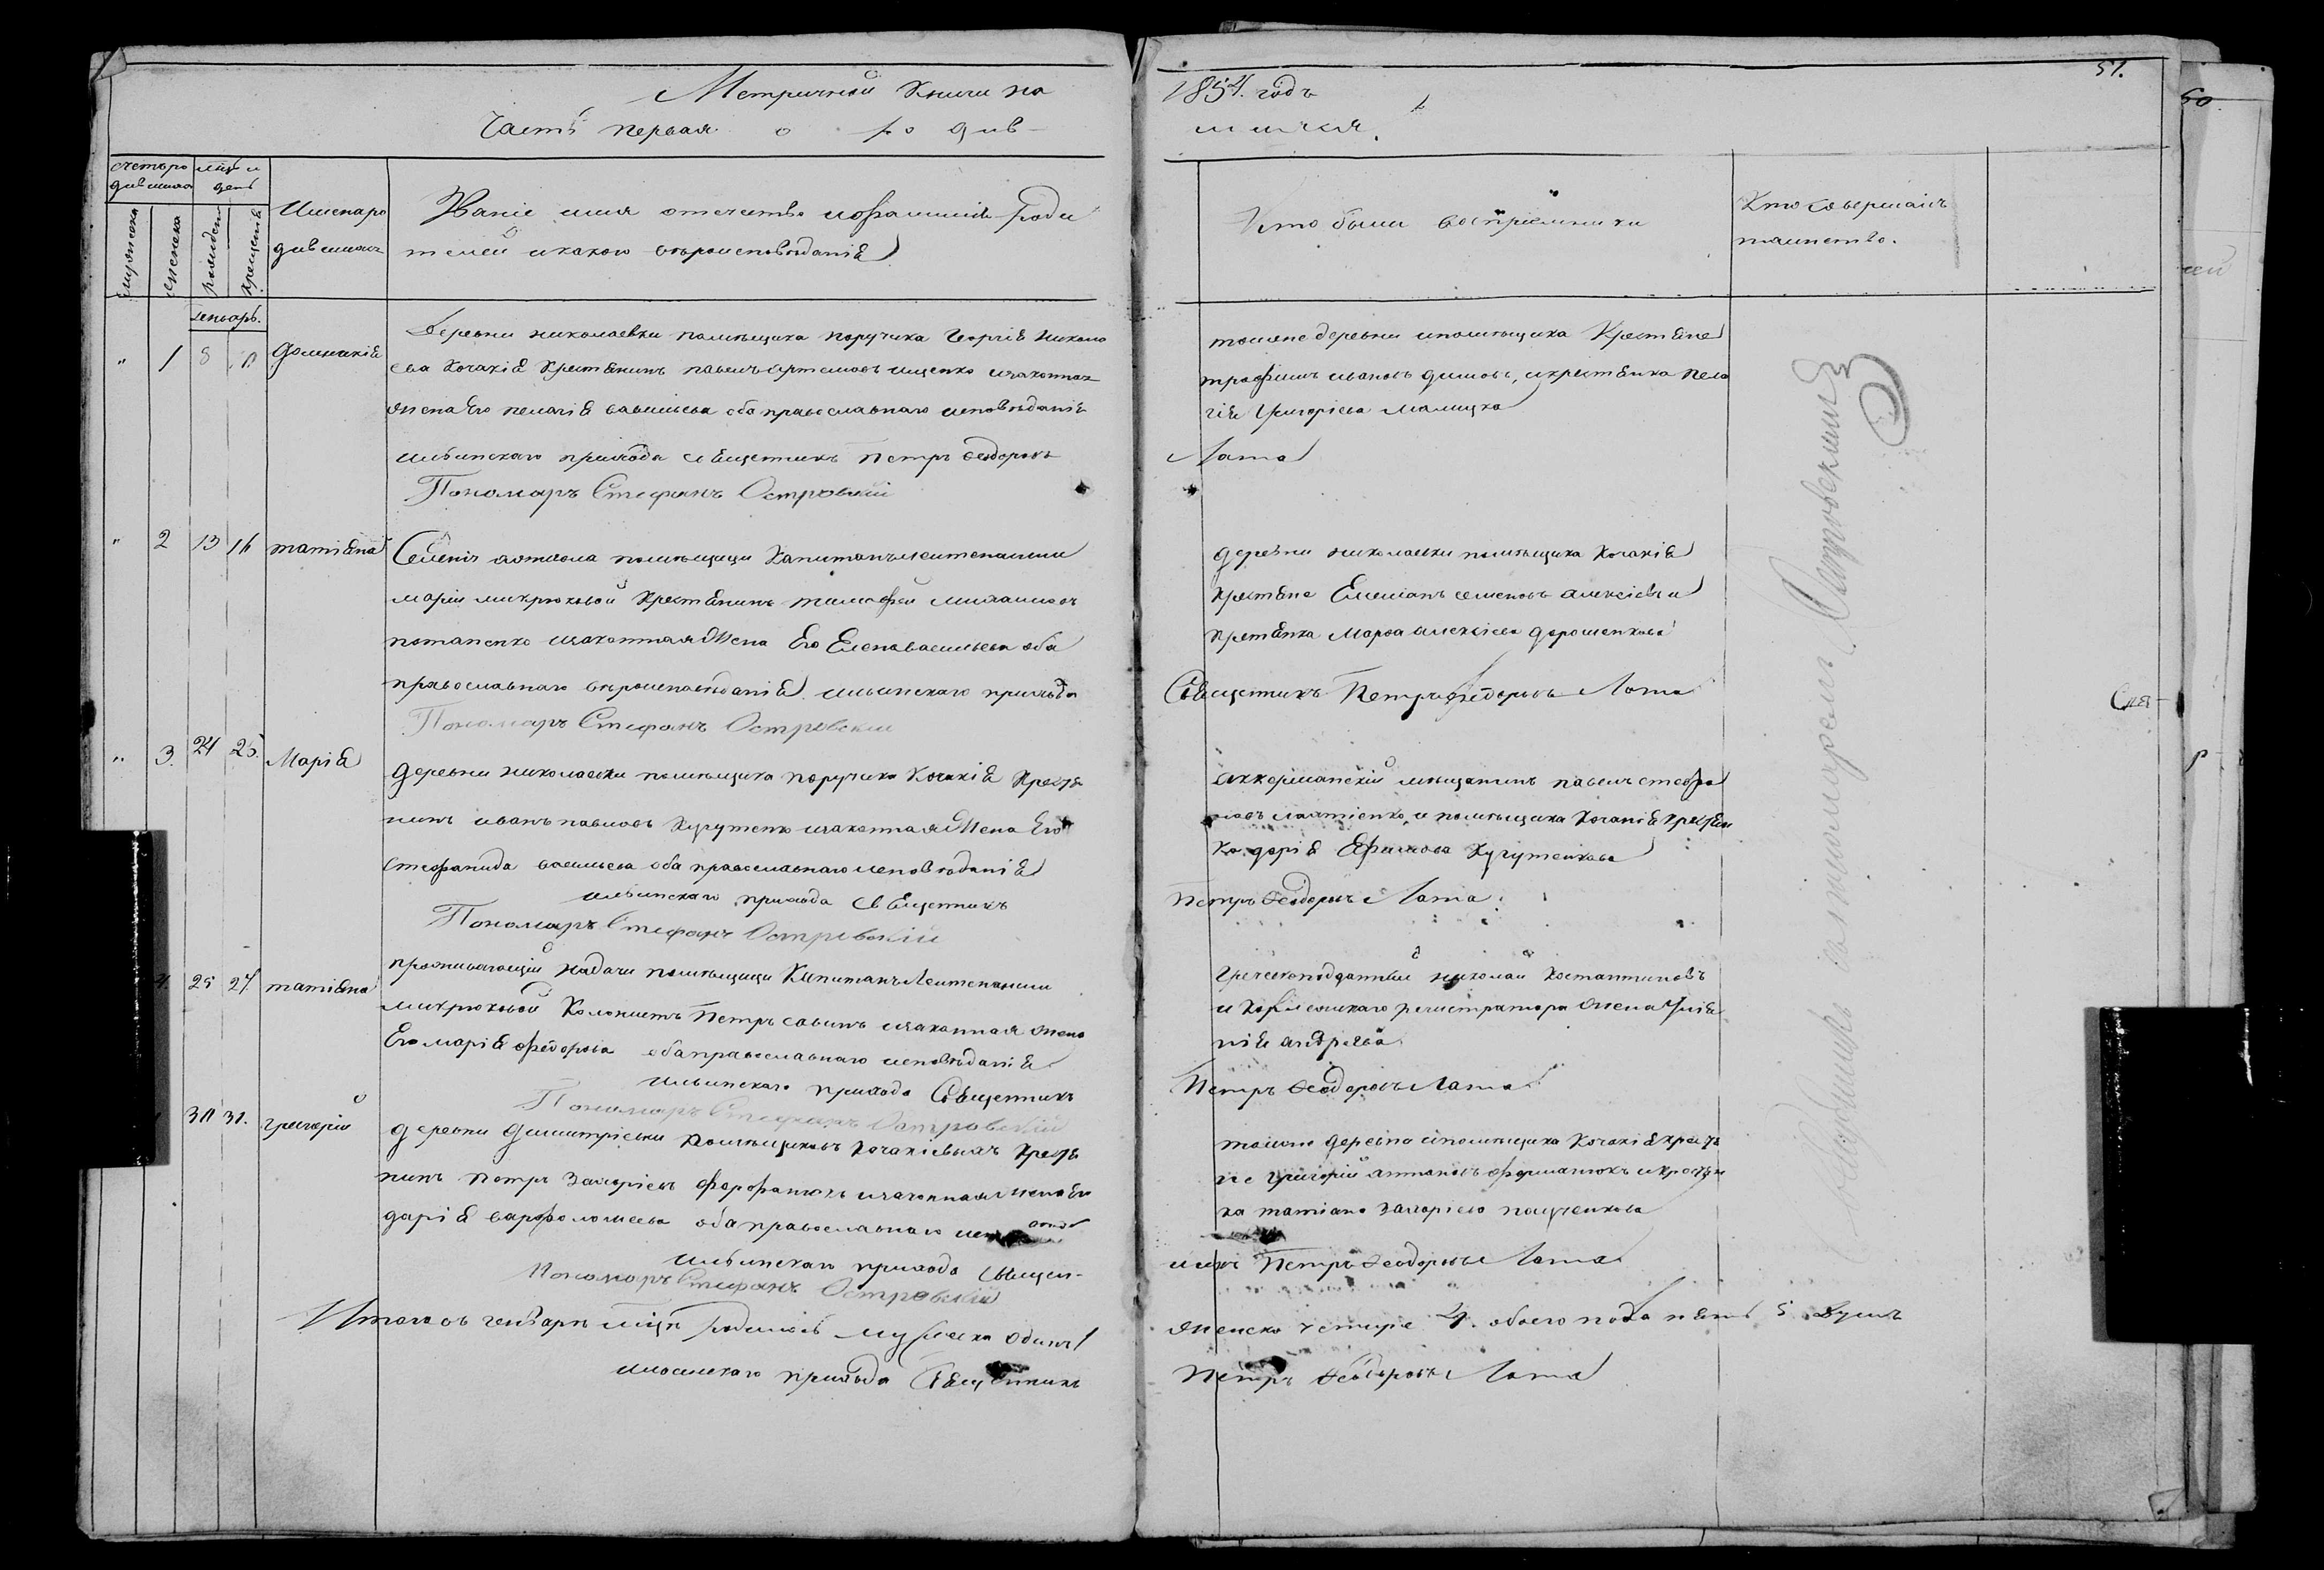 Метричной Книги на
Часть первая о ро див
1854. годъ
шихся.
51.
50
счетъ ро
дившихся
мцъ и
день
мужеска
женска
рожденія
крещенія
Имена ро
дившихъ
Званіе имя отечество и фамилія роди
телей и какого вѣроисповѣданія
Кто были восприемники
Кто совершалъ
таинство.
Генварь.
" 1 8 10 Домникія
Деревни николаевки помѣщика поручика Георгія Никола
ева Кочакія Крестянинъ павелъ Артемовъ ищенко изаконная
жена Его пелагія василіева оба православнаго исповѣданія
ильинскаго прихода свещеникъ Петръ Феодоровъ
Пономаръ Стефанъ Островскій
тоижне деревни ипомѣщика Крестяне
трофимъ ивановъ димовъ, икрестянка пела
гія Григоріева Малицка
Лата
" 2 13 16 татіяна
Селенія помѣщицы Капитанълеитенанши
маріи микрюковой Крестянинъ тимофеи михаиловъ
потапенко изаконная жена Его Елена василіева оба
православнаго вѣроисповѣданія ильинскаго прихода
Пономаръ Стефанъ Островскій
деревни николаевки помѣщика Кочакія
крестяне Емеліанъ семеновъ алексіевъ и
крестянка Марѳа алексіева дорошенкова
Свещеникъ Петръ Феодоровъ Лата
" 3. 24 25. Марія
деревни николаевки помѣщика поручика Кочакія Крестя
нинъ иванъ павловъ Кучутенко изаконная жена Его
стефанида василіева оба православнаго исповѣданія
ильинскаго прихода Свещеникъ
Пономаръ Стефанъ Островскій
аккерманскій мѣщанинъ павелъ стефа
новъ и помѣщика Кочакія крестян
ка дарія Ефимова Кучутенкова
Петръ Феодоровъ Лата
4. 25 27. татіяна
проживающій надачи помѣщицы Капитанъ Леитенанши
микрюковой Колонистъ Петръ савинъ изаконная жена
Его марія фёдорова оба православнаго исповѣданія
ильинскаго прихода Свещеникъ
Пономаръ Стефанъ Островскій
Греческоподданный николай Костантиновъ
и Колежскаго регистратора жена
нія андреева
Петръ Феодоровъ Лата
30 31. григорій
деревни Димитріевки помѣщиковъ Кочакіевыхъ Крестя
нинъ Петръ Захаріевъ изаконная жена Его
дарія варфоломеева оба православнаго
ильинскаго прихода Свещен-
Пономаръ Стефанъ Островскій
тоижне деревни ипомѣщика Кочакія крестя
не григорій антоновъ икрестян
ка татіана Захаріева
никъ Петръ Феодоровъ Лата
Итого въ генварѣ мцѣ родилось мужеска одинъ 1
женска четыре 4. обоего пола пять 5 душъ
ильинскаго прихода Свещенникъ
Петръ Феодоровъ Лата